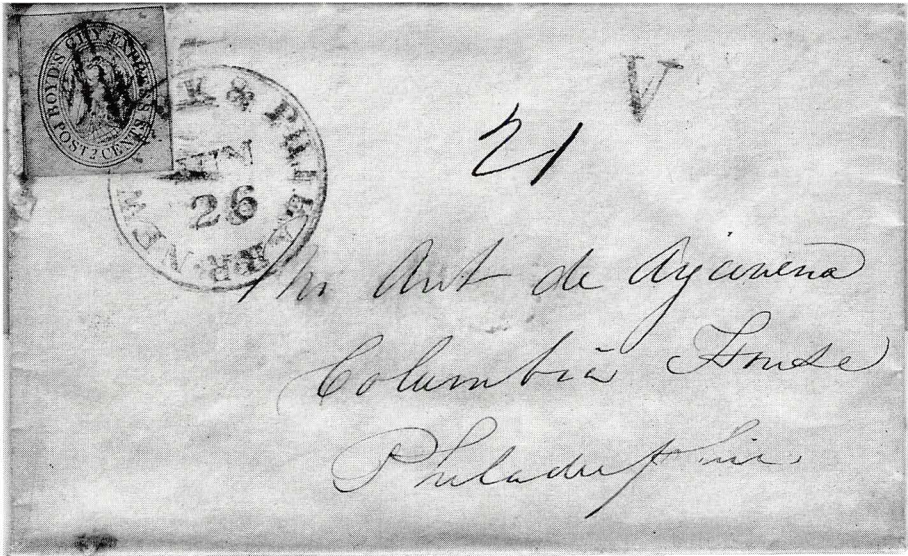 BOYD'S CITY EXPRESS
POST 2 CENTS
NEW YORK & PHILA. R.R.
JUN
26
V
21
Mr Ant de
Columbia House
Philadelphia